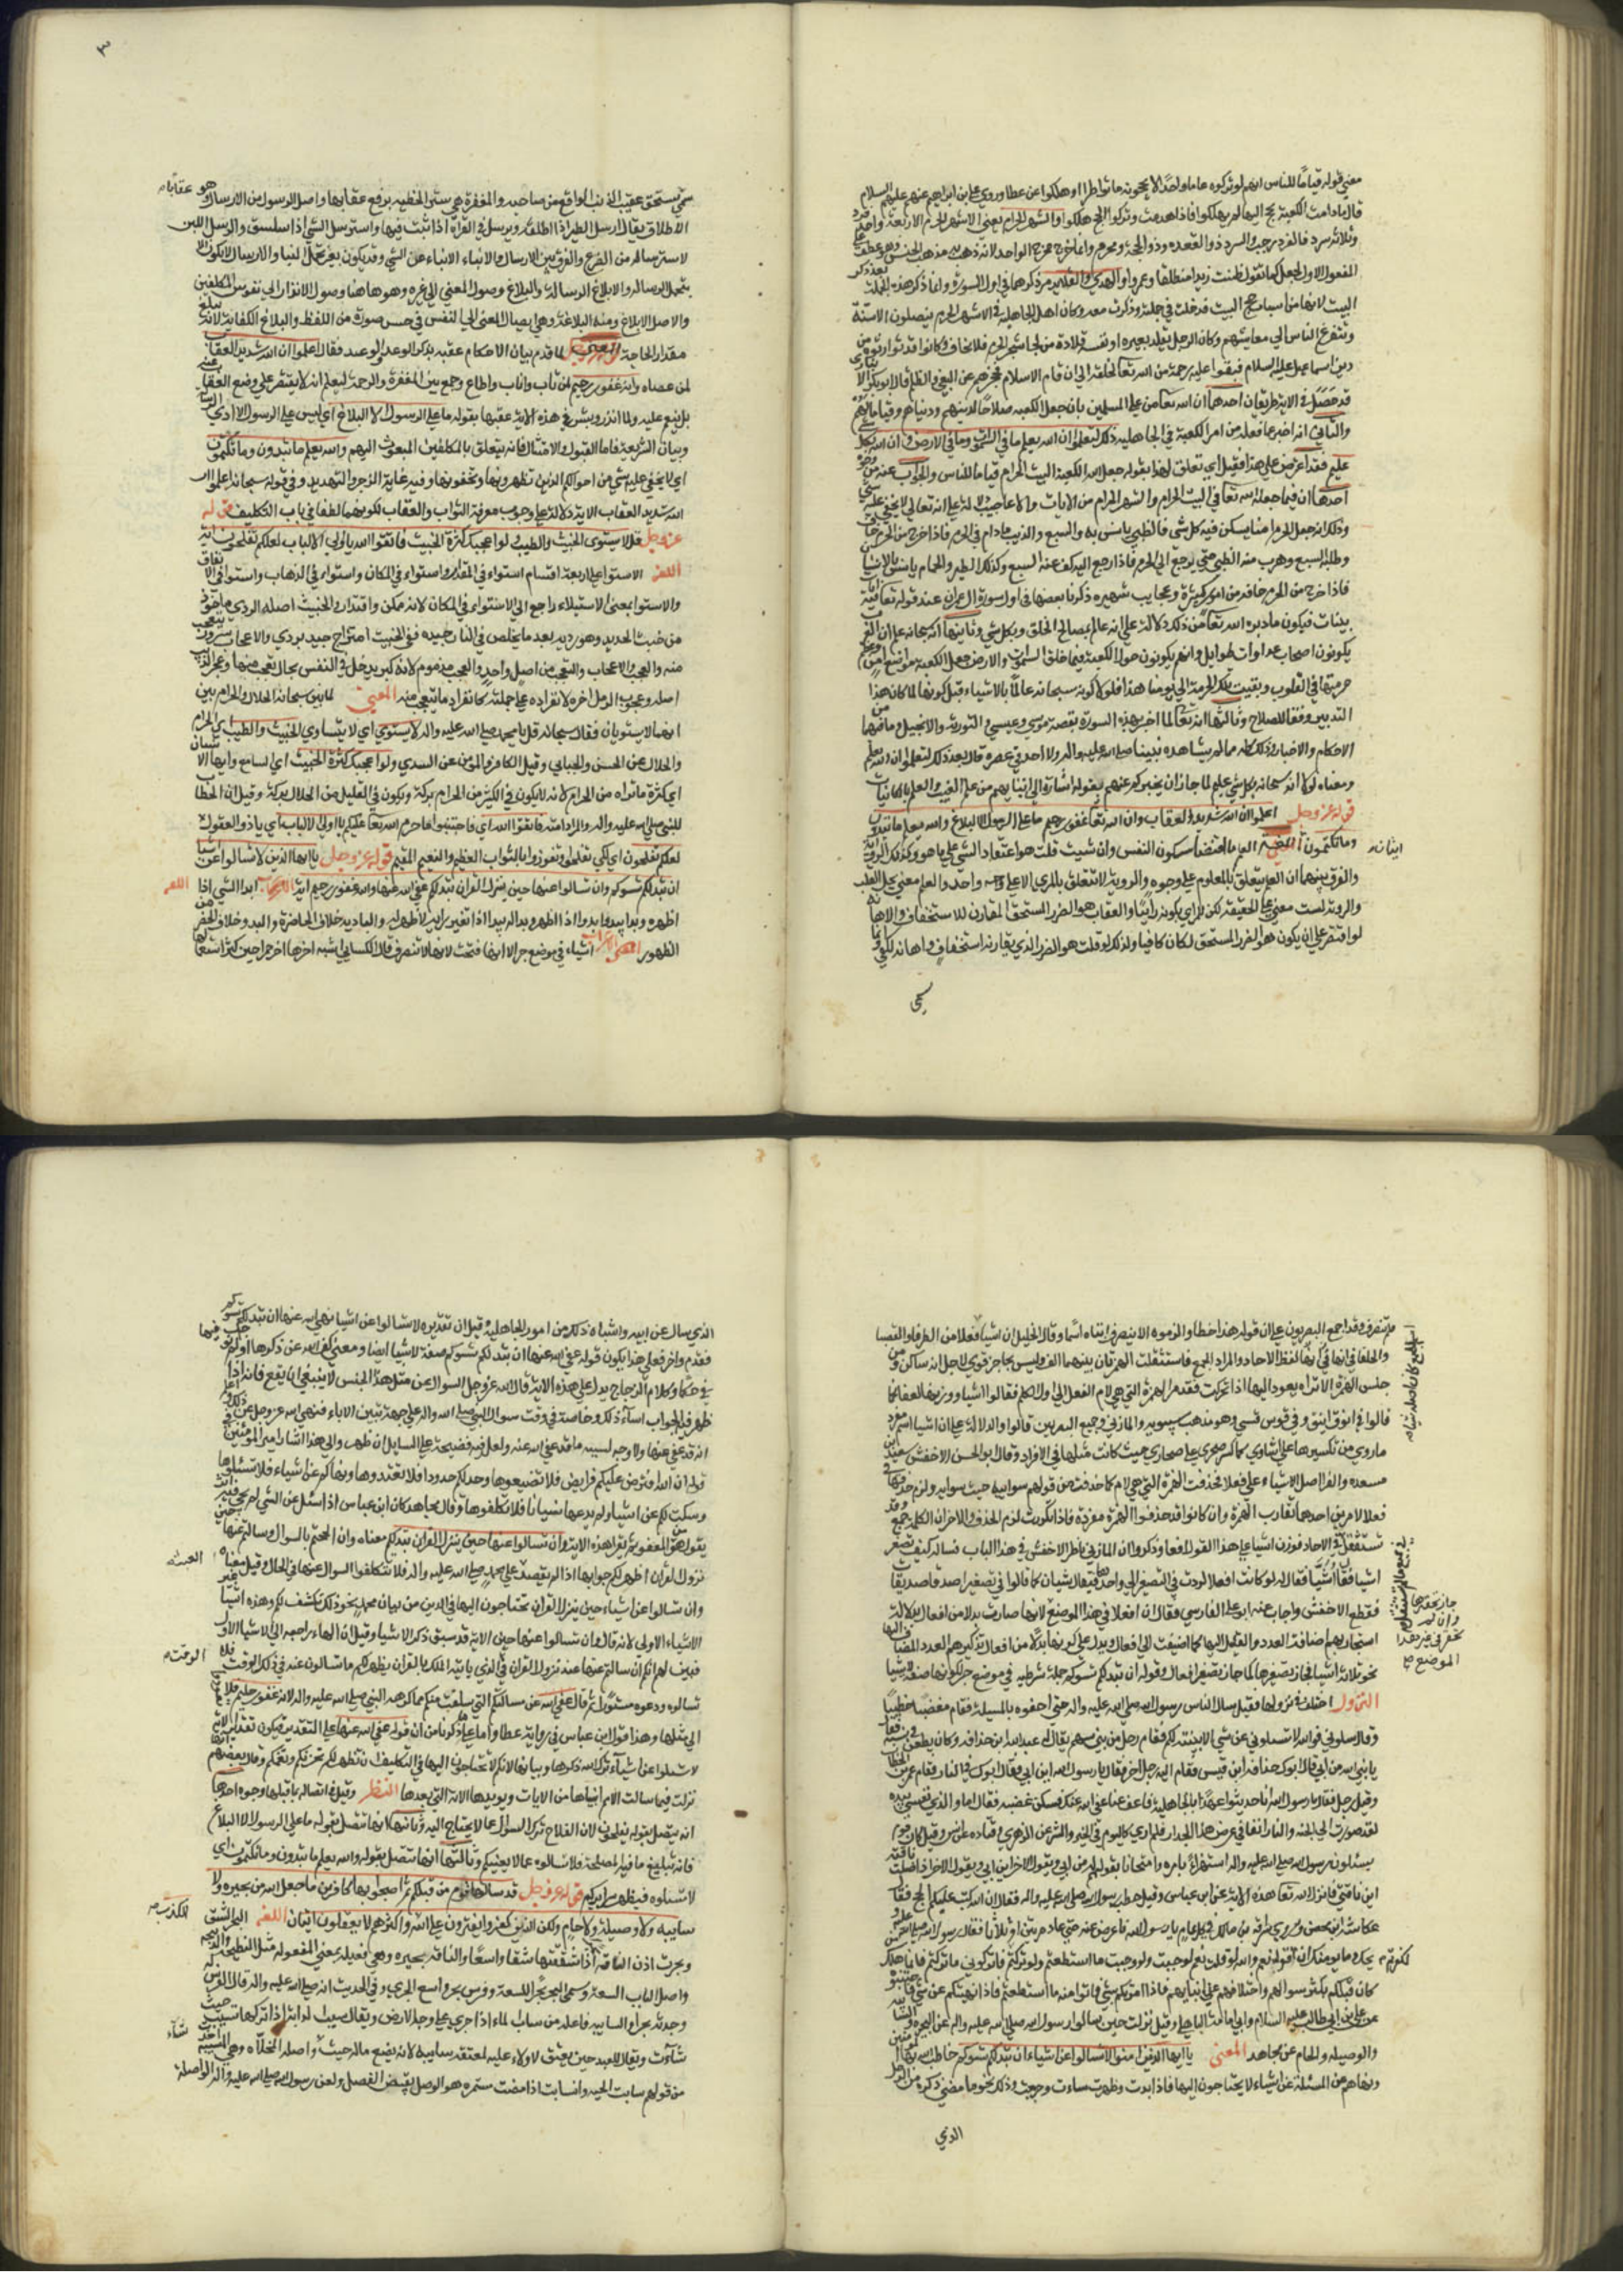 معني قوله قياما للناس انهم لو تركوه عاما واحدا لا يحجونه ما نوظروا وهلكوا عن عطا ورواه علي بن ابراهيم عنهم عليهم السلام
قال ما دامت الكعبة يحج اليها لم يهلكوا فاذا هدمت وتركوا الحج هلكوا والشهر الحرام يعني الاشهر الحرم الاربعة واحد فرد
وثلاثة سرد فالفرد رجب والسرد ذو القعده وذو الحجة ومحرم وانما خرج مخرج الواحد لانه ذهب به مذهب الجنس وهو عطف على
المفعول الاول لجعل كما تقول ظننت زيدا منطلقا وعمروا والهدي والقلايد مر ذكرهما في اول السورة وانما ذكر هذه الجملة بعد ذكر
البيت لانها من اسباب حج البيت فدخلت في جملته وذكرت معه وكان اهل الجاهلية في الاشهر الحرم ينصلون الاسنة
ويتفرغ الناس الي معايشهم وكان الرجل يقلد بعيره او نفسه قلادة من لحا شجر الحرم فلا يخاف وكانوا قد توارثوه من
دين اسماعيل عليه السلام فبقوا عليه رحمة من الله تعالى لخلقه الي ان قام الاسلام فحجزهم عن البغي والظلم قال ابو بكر
قد حصل في الاية طريقان احدهما ان الله تعالى من علي المسلمين بان جعل الكعبه صلاحا لدينهم ودنياهم وقياما لهم
والثاني انه اخبر عما فعله من امر الكعبة في الجاهلية ذلك لتعلموا ان الله يعلم ما في السموات وما في الارض وان الله بكل شي
عليم فقد اعترض علي هذا فقيل اي تعلق لهذا بقوله جعل الله الكعبة البيت الحرام قياما للناس والجواب عنه من وجوه
احدها ان فيما جعله الله تعالى في البيت الحرام والشهر الحرام من الايات والاعاجيب دلالة علي انه تعالي لا يخفي عليه شي
وذلك انه جعل الحرم امنا يسكن فيه كل شي فالظبي يانس به والسبع والذيب ما دام في الحرم فاذا خرج من الحرم خاف
وطلبه السبع وهرب منه الظبي حتي يرجع الي الحرم فاذا رجع اليه كف عنه السبع وكذلك الطير والحمام يانس بالانسان
فاذا خرج من الحرم خافه مع امور كثيرة وعجايب شهيره ذكرنا بعضها في اول سورة ال عمران عند قوله تعالى فيه ايات
بينات فيكون ما دبره الله تعالى من ذلك دلالة علي انه عالم بمصالح الخلق وبكل شي وثانيها انه سبحانه علم ان العرب
يكونون اصحاب عداوات طوايل وانهم يكونون حوالي الكعبة فلما خلق السموات والارض جعل الكعبة موضع امن وعظم
حرمتها في القلوب وبقيت تلك الحرمة الي يومنا هذا فلولا كونه سبحانه عالما بالاشياء قبل كونها لما كان هذا
التدبير وفقا للصلاح وثالثها انه تعالى لما اخبر بهذه السورة بقصة موسي وعيسي والتورية والانجيل وما فيها من
الاحكام والاخبار وذلك كله مما لم يشاهده نبينا صلي الله عليه واله ولا احد في عصره قال بعد ذلك لتعلموا ان الله يعلم
ومعناه لولا انه سبحانه بكل شي عليم لما جاز ان يخبركم عنهم فقوله اشارة الي انبايهم من علم الغيب والعلم بالكاينات
قوله عز وجل اعلموا ان الله شديد العقاب وان الله غفور رحيم ما علي الرسول الا البلاغ والله يعلم ما تبدون
وما تكتمون المعني العلم ما اقتضي سكون النفس وان شئت قلت هو اعتقاد الشي علي ما هو به وكذلك الروية
ايتان
والفرق بينهما ان العلم يتعلق بالمعلوم علي وجوه والروية لا تتعلق بالمرئي الا علي وجه واحد والعلم معني يحل القلب
والروية ليست معني علي الحقيقة لكن الرائي يكون رائيا والعقاب هو الضرر المستحق المقارن للاستخفاف والاهانة
لو اقتصر علي ان يكون هو الضرر المستحق لكان كافيا ولذلك لو قلت هو الضرر الذي يقارنه استخفاف واهانة لكفي وانما
٣
سمي تستحق عقيب الذنب الواقع من صاحبه والمغفرة هي ستر الخطيه برفع عقابها واصل الرسول من الارسال وهو
عقابا
الاطلاق يقال ارسل الطير اذا اطلقه وترسل في القراة اذا تثبت فيها واسترسل الشي اذا سلس والرسل اللبن
لاسترساله من الضرع والفرق بين الارسال والانباء ان الانباء عن الشي وقد يكون بغير تحمل النبا والارسال لا يكون الا
بتحمل الرسالة والابلاغ الرسالة والبلاغ وصول المعني الي غيره وهو هاهنا وصول الانذار الي نفوس المكلفين
والاصل الابلاغ ومنه البلاغة وهي ايصال المعني الي النفس في حسن صورة من اللفظ والبلاغ الكفاية لانه يبلغ
مقدار الحاجة المعني لما قدم بيان الاحكام عقبه بذكر الوعد والوعيد فقال اعلموا ان الله شديد العقاب
لمن عصاه وانه غفور رحيم لمن تاب واناب واطاع وجمع بين المغفرة والرحمة ليعلم انه لا يقتصر علي وضع العقاب
بل ينعم عليه ولما انذر وبشر في هذه الاية عقبها بقوله ما علي الرسول الا البلاغ اي ليس علي الرسول الا اداء الرسالة
وبيان الشريعة فاما القبول والامتثال فانه يتعلق بالمكلفين المبعوث اليهم والله يعلم ما تبدون وما تكتمون
اي لا يخفي عليه شي من احوالكم الذين تظهرونها وتخفونها وفيه غاية الزجر والتهديد وفي قوله سبحانه اعلموا ان
الله شديد العقاب الاية دلالة علي وجوب معرفة الثواب والعقاب لكونهما لطفا في باب التكليف قوله
عز وجل قل لا يستوي الخبيث والطيب ولو اعجبك كثرة الخبيث فاتقوا الله يا اولي الالباب لعلكم تفلحون اية
اللغة الاستوا علي اربعة اقسام استواء في المقدار واستواء في المكان واستواء في الذهاب واستواء في الانفاق
والاستوا بمعني الاستيلاء راجع الي الاستواء في المكان لانه مكن واقتدار والخبيث اصله الردي ماخوذ
من خبث الحديد وهو رديه بعد ما يخلص في النار جيده ففي الخبيث امتزاج جيد بردي والاعجاب سرور بما يتعجب
منه والعجب والاعجاب والتعجب من اصل واحد والعجب مذموم لانه كبر يدخل في النفس بحال تعجب منها وعجب الذنب
اصله وعجوب الرمل اخره لانفراده عن جملته كانفراد ما يتعجب منه المعني لما بين سبحانه الحلال والحرام بين
انهما لا يستويان فقال سبحانه قل يا محمد صلي الله عليه واله لا يستوي اي لا يتساوي الخبيث والطيب اي الحرام
والحلال عن الحسن والجبايي وقيل الكافر والمؤمن عن السدي ولو اعجبك كثرة الخبيث اي لسامع وايها الانسان
اي كثرة ما تراه من الحرام لانه لا يكون في الكثير من الحرام بركة ويكون في القليل من الحلال بركة وقيل ان الخطاب
للنبي صلي الله عليه واله والمراد امته فاتقوا الله اي فاجتنبوا ما حرم الله تعالى عليكم يا اولي الالباب اي يا ذو العقول
لعلكم تفلحون اي لكي تفلحوا وتفوزوا بالثواب العظيم والنعيم المقيم قوله عز وجل يا ايها الذين لا تسالوا عن اشيا
ان تبد لكم تسوكم وان تسالوا عنها حين ينزل القران تبد لكم عفي الله عنها والله غفور رحيم اية ابدا الشي اذا
اللغة
اظهره وبدا يبدو بدوا اذا ظهر وبدا له بدا اذا تغير رايه لانه ظهر له والبادية خلاف الحاضرة والبدو خلاف الحضر من
الظهور الاعراب اشياء في موضع جر الا انها فتحت لانها لا تنصرف قال الكسايي اشبه اخرها اخر حمرا حين كثر استعمالها
لم تنصرف وقد اجمع البصريون علي ان قوله هذا خطا والزموه الا ينصرف ابناء واسما وقال الخليل ان اشياء فعلا من الطرفا والقصبا
والحلفا في انها في كلها لفظ الاحاد والمراد الجمع فاستثقلت الهمزتان بينهما الف وليس بحاجز قوي لاجل انه ساكن ومن
جنس الهمزة الا تراه يعود اليها اذا تحركت فقدموا الهمزة التي هي لام الفعل الي اول الكلم فقالوا اشيا ووزنها لفعا كما
قالوا في انوق اينق وفي قووس قسي وهو مذهب سيبويه والمازني وجميع البصريين قالوا والدلالة علي ان اشيا اسم مفرد
ما روي من تكسيرها علي اشاوي كما كسر صحرا علي صحاري حيث كانت مثلها في الافراد وقال ابو الحسن الاخفش سعيد بن
مسعده والفرا اصل الاشياء علي افعلا فحذفت الهمزة التي هي لام كما حذفت من قولهم سوايه حيث سوايه ولزم حذفها في
افعلا لامرين احدهما تقارب الهمزة وان كانوا قد حذفوا الهمزة مفردة فاذا تكررت لزم الحذف والاخر ان الكلمة جمع وقد
تستثقل في الاحاد فوزن اشيا علي هذا القول افعا وذكروا ان المازني ناظر الاخفش في هذا الباب فساله كيف تصغر
اشيا فقال اشيا فقال له لو كانت افعلا لردت في التصغير الي واحدها فيقال شييات كما قالوا في تصغير اصدقا صديقات
فقطع الاخفش واجاب عنه ابو علي الفارسي فقال ان افعلا في هذا الموضع لانها صارت بدلا من افعال بدلالة
استجازتهم اضافة العدد القليل اليها كما اضيفت الي افعال ويدل علي كونها بدلا من افعال تذكيرهم العدد المضاف اليها
نحو ثلاثة اشيا فكما جاز تصغيرها كما جاز تصغير افعال وقوله ان تبد لكم تسوكم جملة شرطيه في موضع جر لكونها صفة لاشيا
النزول اختلف في نزولها فقيل سال الناس رسول الله صلي الله عليه واله حتي احفوه بالمسيلة فقام مغضبا خطيبا
وقال سلوني فوالله لا تسئلوني عن شي الا بينته لكم فقام رجل من بني سهم يقال له عبد الله بن حذافه وكان يطعن في نسبه فقال
يا نبي الله من ابي قال ابوك حذافه ابن قيس فقام اليه رجل اخر فقال يا رسول الله اين ابي فقال ابوك في النار فقام عمر بن الخطاب
وقبل رجله فقال يا رسول الله انا حديثوا عهد بالجاهلية فاعف عنا عفي الله عنك فسكن غضبه فقال اما والذي نفسي بيده
لقد صورت لي الجنة والنار انفا في عرض هذا الجدار فلم ار كاليوم في الخير والشر عن الزهري وقتاده عن انس وقيل كان قوم
يسئلون رسول الله صلي الله عليه واله استهزاء مره وامتحانا مره يقول له من ابي ويقول الاخر اين ابي ويقول الاخر اذا ضلت ناقته
اين ناقتي فانزل الله تعالى هذه الاية عن ابن عباس وقيل خطب رسول الله صلي الله عليه واله فقال ان الله كتب عليكم الحج فقام
عكاشة ابن محصن وقيل سراقه بن مالك في كل عام يا رسول الله فاعرض عنه حتي عاد مرتين او ثلاثا فقال رسول الله صلي الله عليه
ويحك وما يومنك ان اقول نعم والله لو قلت نعم لوجبت ولو وجبت ما استطعتم ولو تركتم لكفرتم فاتركوني ما تركتم فانما هلك من
كان قبلكم بكثرة سوالهم واختلافهم علي انبيائهم فاذا امرتكم بشي فاتوا منه ما استطعتم فاذا نهيتكم عن شي فاجتنبوه
عن علي بن ابي طالب عليه السلام وابي امامة الباهلي وقيل نزلت حين سالوا رسول الله صلي الله عليه واله عن البحيره والسائبه
والوصيله والحام عن مجاهد المعني يا ايها الذين امنوا لا تسالوا عن اشياء ان تبد لكم تسوكم خاطب الله المومنين
ونهاهم عن المسئلة عن اشياء لا يحتاجون اليها فاذا بدت وظهرت ساءت وحزنت وذلك نحو ما مضي ذكره من الرجل
الذي
الذي سال عن ابيه واشباه ذلك من امور الجاهلية وقيل ان تقديره لا تسالوا عن اشيا عفي الله عنها ان تبد لكم تسوكم
فقدم واخر فعلي هذا يكون قوله عفي الله عنها ان تبد لكم تسوكم صفة لاشيا ايضا ومعناه كف الله عن ذكرها ولم يوجب فيها
حكما وكلام الزجاج يدل علي هذه الاية قال الله عز وجل السوال عن مثل هذا الجنس لا ينبغي ان يقع فانه اذا
ظهر فيه الجواب اساء ذلك وخاصة في وقت سوال النبي صلي الله عليه واله علي جهة تبيين الانباء فنهي الله عز وجل عن ذلك
انه قد عفي عنها ولا وجه لمسئلة ما قد عفي الله عنه ولعل فيه فضيحة علي السايل ان ظهر والي هذا اشار امير المؤمنين في
قوله ان الله افترض عليكم فرايض فلا تضيعوها وحد لكم حدودا فلا تعتدوها ونهاكم عن اشياء فلا تنتهكوها
وسكت لكم عن اشياء ولم يدعها نسيانا فلا تتكلفوها وقال مجاهد كان ابن عباس اذا سئل عن الشي لم يجي فيه اثر
يقول هو من العفو ثم يقرا هذه الاية وان تسالوا عنها حين ينزل القران تبد لكم معناه وان الححتم بالسوال وسالتم عنها حين
نزول القران اظهر لكم جوابها اذا لم يقصد علي محمد صلي الله عليه واله فلا تتكلفوا السوال عنها في الحال وقيل معناه
وان تسالوا عن اشياء حين ينزل القران تحتاجون اليها في الدين من بيان محمد ونحو ذلك تكشف لكم وهذه اشيا غير
الاشياء الاولي لانه قال وان تسالوا عنها حين الاية قد سبق ذكر الاشيا وقيل ان الهاء راجعه الي الاشيا الاول
فبين لهم انكم ان سالتم عنها عند نزول القران في الذي ياتيه الملك بالقران يظهر لكم ما تسالون عنه في ذلك الوقت فلا
الوقت
تسالوه ودعوه مستورا ثم قال عفي الله عن مسالتكم التي سلفت منكم مما كرهه النبي صلي الله عليه واله لانه غفور حليم فلا تعودوا
الي مثلها وهذا قول ابن عباس في رواية عطا واما علي ما ذكرناه من ان قوله عفي الله عنها علي التقديم فيكون تقديره
لا تسلوا عن اشياء ترك الله ذكرها وبيانها لانكم لا تحتاجون اليها في التكليف ان تظهر لكم تحزنكم وتغمكم وقال بعضهم انها
نزلت فيما سالت الامم انبياها من الايات ويويدها الاية التي بعدها النظم وقيل في اتصاله بما قبلها وجوه احدها
انه يتصل بقوله تفلحون لان الفلاح ترك السؤال عما لا يحتاج اليه وثانيها انها تتصل بقوله ما علي الرسول الا البلاغ
فانه تبليغ ما فيه المصلحة فلا تسالوه عما لا يعنيكم وثالثها انها تتصل بقوله والله يعلم ما تبدون وما تكتمون اي
لا تسئلوه فيظهر سرايركم قوله عز وجل قد سالها قوم من قبلكم ثم اصبحوا بها كافرين ما جعل الله من بحيره ولا
سايبه ولا وصيلة ولا حام ولكن الذين كفروا يفترون علي الله الكذب واكثرهم لا يعقلون ايتان اللغة البحر الشق
وبحرت اذن الناقة اذا شققتها شقا واسعا والناقه بحيره وهي فعيله بمعني المفعوله مثل النطيحة والذبيحة
واصل الباب السعة وسمي البحر بحرا لسعته وفرس بحر واسع الجري وفي الحديث انه صلي الله عليه واله قال لفرس له
وجدته بحرا والسايبه فاعله من ساب الماء اذا جري علي وجه الارض ويقال سيبت الدابة اذا تركتها تسيب حيث
شاءت ويقال للعبد حين يعتق لا ولاء عليه لمعتقه سايبه لانه يضع ماله حيث شاء واصله المخلاه وهي المسيبه
من قولهم سابت الحيه وانسابت اذا مضت مستمره هو الوصل نقيض الفصل ولعن رسول الله صلي الله عليه واله الواصلة